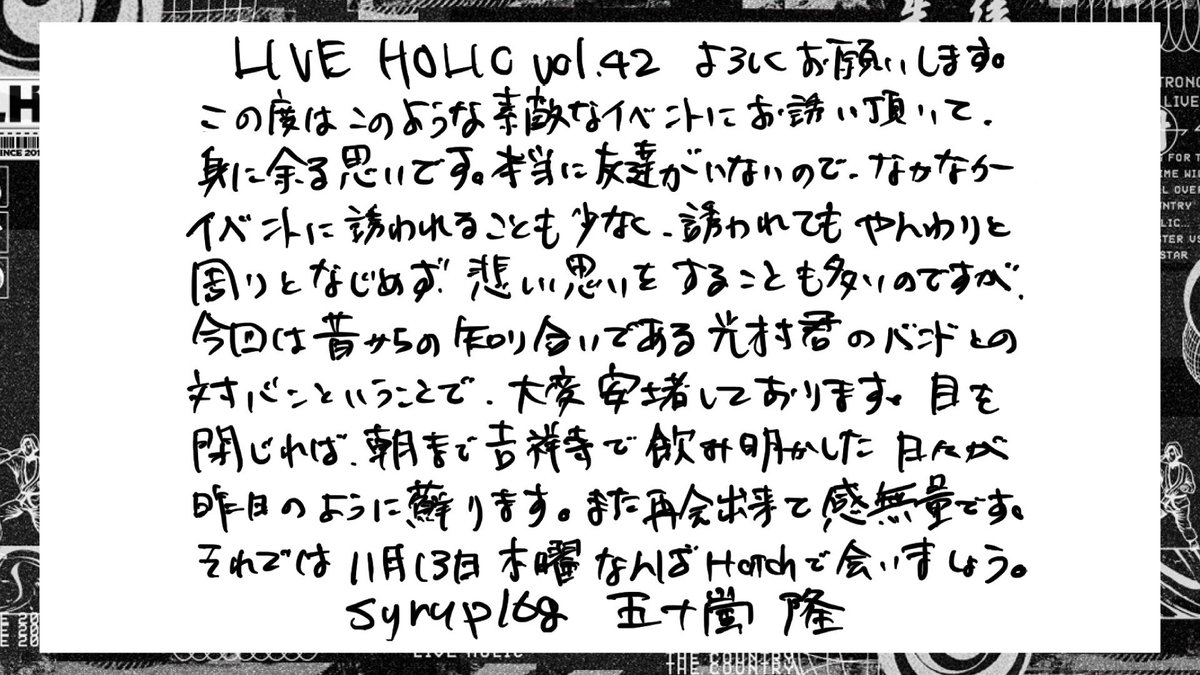 LIVE HOLIC vol.42 よろしくお願いします。
この度はこのような素敵なイベントにお誘い頂いて、
身に余る思いです。本当に友達がいないので、なかなか
イベントに誘われることも少なく、誘われてもやんわりと
周りとなじめず、悲しい思いをすることも多いのですが、
今回は昔からの知り合いである光村君のバンドとの
対バンということで、大変安堵しております。目を
閉じれば、朝まで吉祥寺で飲み明かした日々が
昨日のように蘇ります。また再会出来て感無量です。
それでは11月13日木曜なんばHatchで会いましょう。
syrup16g 五十嵐 隆
SINCE 201
LIVE HOLIC
THE COUNTRY